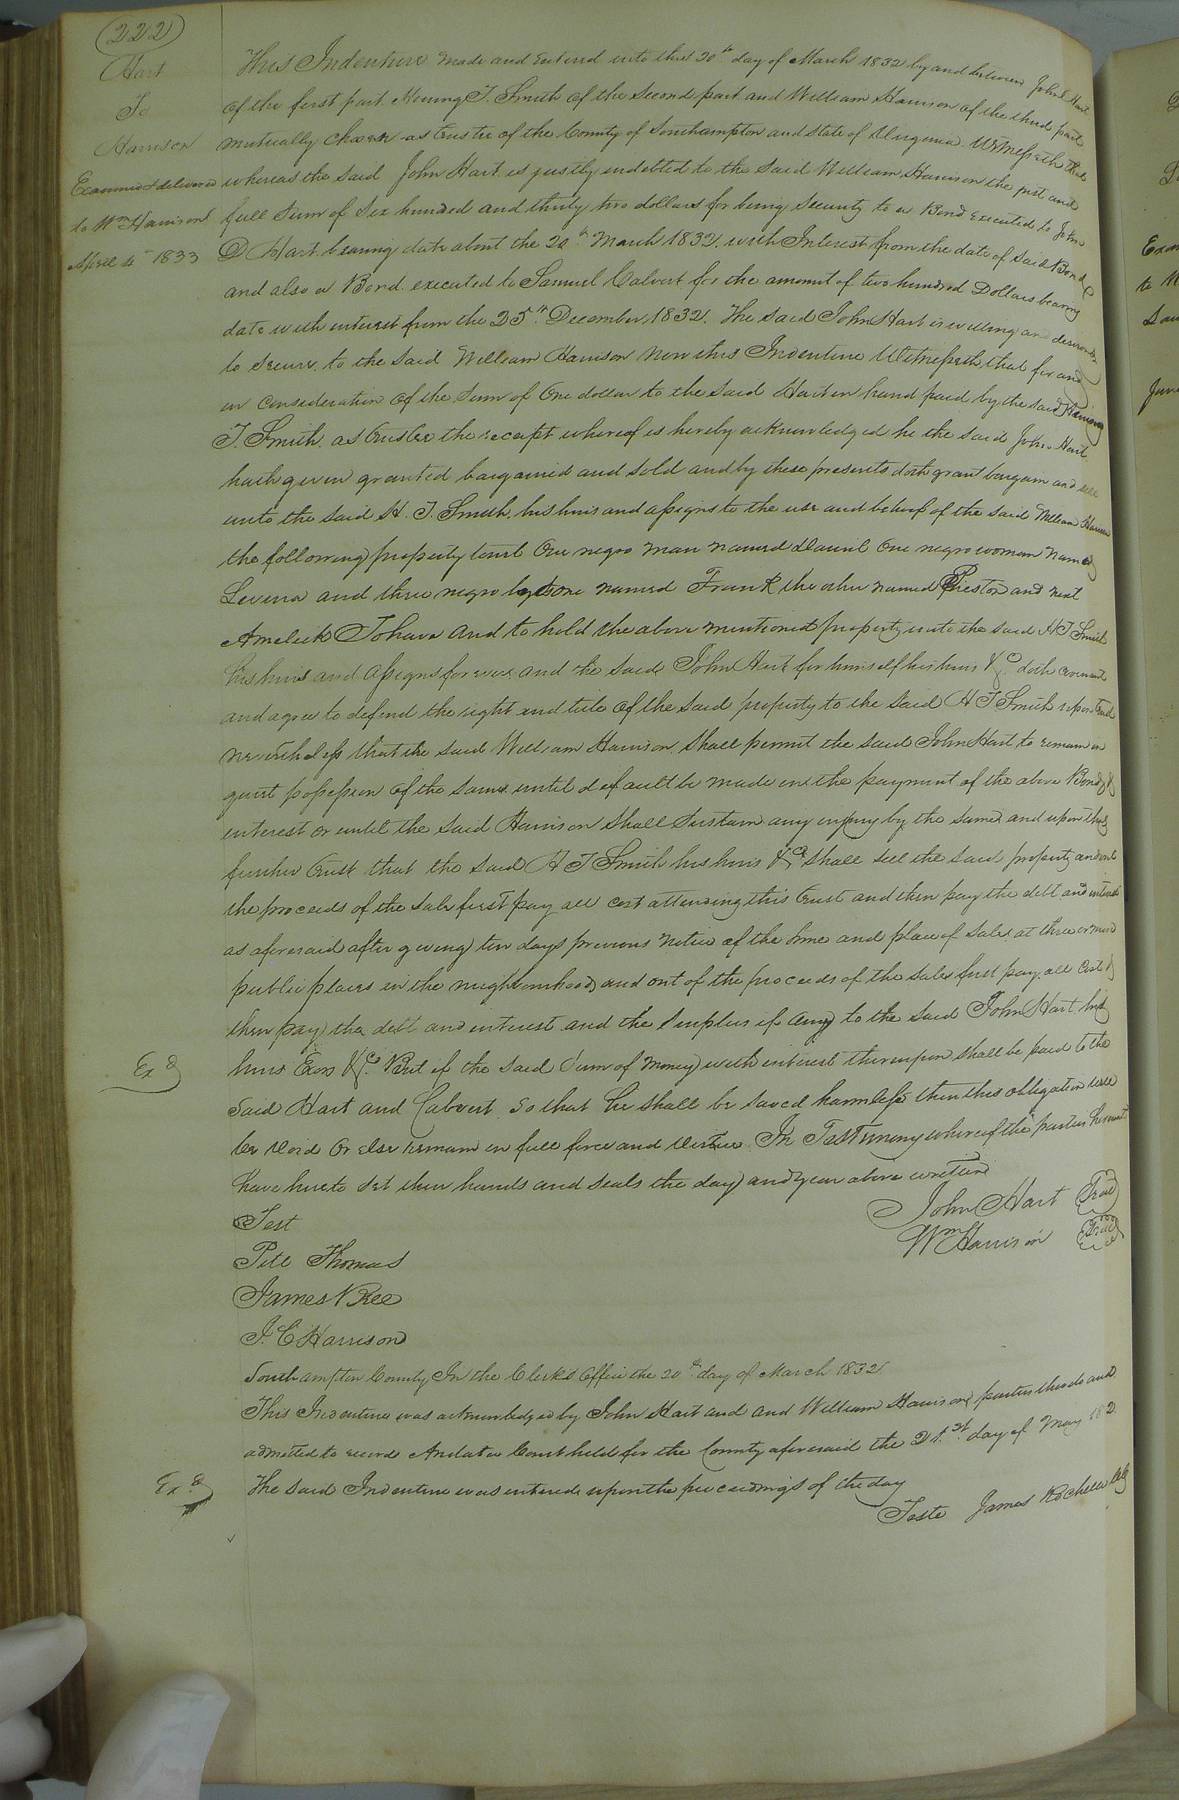 222
Hart
To
Harrison
Examined & delivered
to Wm Harrison
April 4th 1833
This Indenture made and entered into this 20th day of March 1832 by and between John Hart
of the first part Hening T. Smith of the Second part and William Harrison of the third part
mutually chosen as Trustee of the County of Southampton and State of Virginia Witnesseth that
whereas the said John Hart is justly indebted to the said William Harrison the just and
full sum of Six hundred and thirty two dollars for being Security to a Bond executed to John
D Hart bearing date about the 20th March 1832 with Interest from the date of said Bond &
and also a Bond executed to Samuel Calvert for the amount of two hundred Dollars bearing
date with interest from the 25th December 1832. The said John Hart is willing and desirous
to secure to the said William Harrison Now this Indenture Witnesseth that for and
in consideration of the sum of One dollar to the said Hart in hand paid by the said Hening
T. Smith as Trustee the receipt whereof is hereby acknowledged he the said John Hart
hath given granted bargained and sold and by these presents doth grant bargain and sell
unto the said H. T. Smith his heirs and assigns to the use and behoof of the said William Harrison
the following property towit One negro man named Daniel One negro woman named
Levina and three negro boys one named Frank the other named Preston and next
Ameleck To have and to hold the above mentioned property unto the said H T Smith
his heirs and assigns forever and the said John Hart for himself his heirs &c doth covenant
and agree to defend the right and title of the said property to the said H T Smith upon trust
nevertheless that the said William Harrison shall permit the said John Hart to remain in
quiet possession of the same until default be made in the payment of the above Bonds &
interest or until the said Harrison shall sustain any injury by the same and upon this
further trust that the said H T Smith his heirs &c shall sell the said property and out
the proceeds of the sale first pay all cost attending this trust and then pay the debt and interest
as aforesaid after giving ten days previous notice of the time and place of sale at three or more
public places in the neighbourhood and out of the proceeds of the sales first pay all Cost &
then pay the debt and interest and the surplus if any to the said John Hart his
Exd
heirs Exors &c. But if the said Sum of Money with interest thereupon shall be paid to the
said Hart and Calvert so that he shall be saved harmless then this obligation will
be void or else remain in full force and virtue In Testimony whereof the parties hereunto
have hereto set their hands and seals the day and year above written
John Hart Seal
Test
Wm Harrison Seal
Peter Thomas
James N Kee
J. C Harrison
Southampton County In the Clerks Office the 20th day of March 1832
This Indenture was acknowledged by John Hart and and William Harrison parties thereto and
admitted to record And at a Court held for the County aforesaid the 21st. day of May 182
Exd
The said Indenture was entered upon the proceedings of the day
Teste James Rochelle Clk